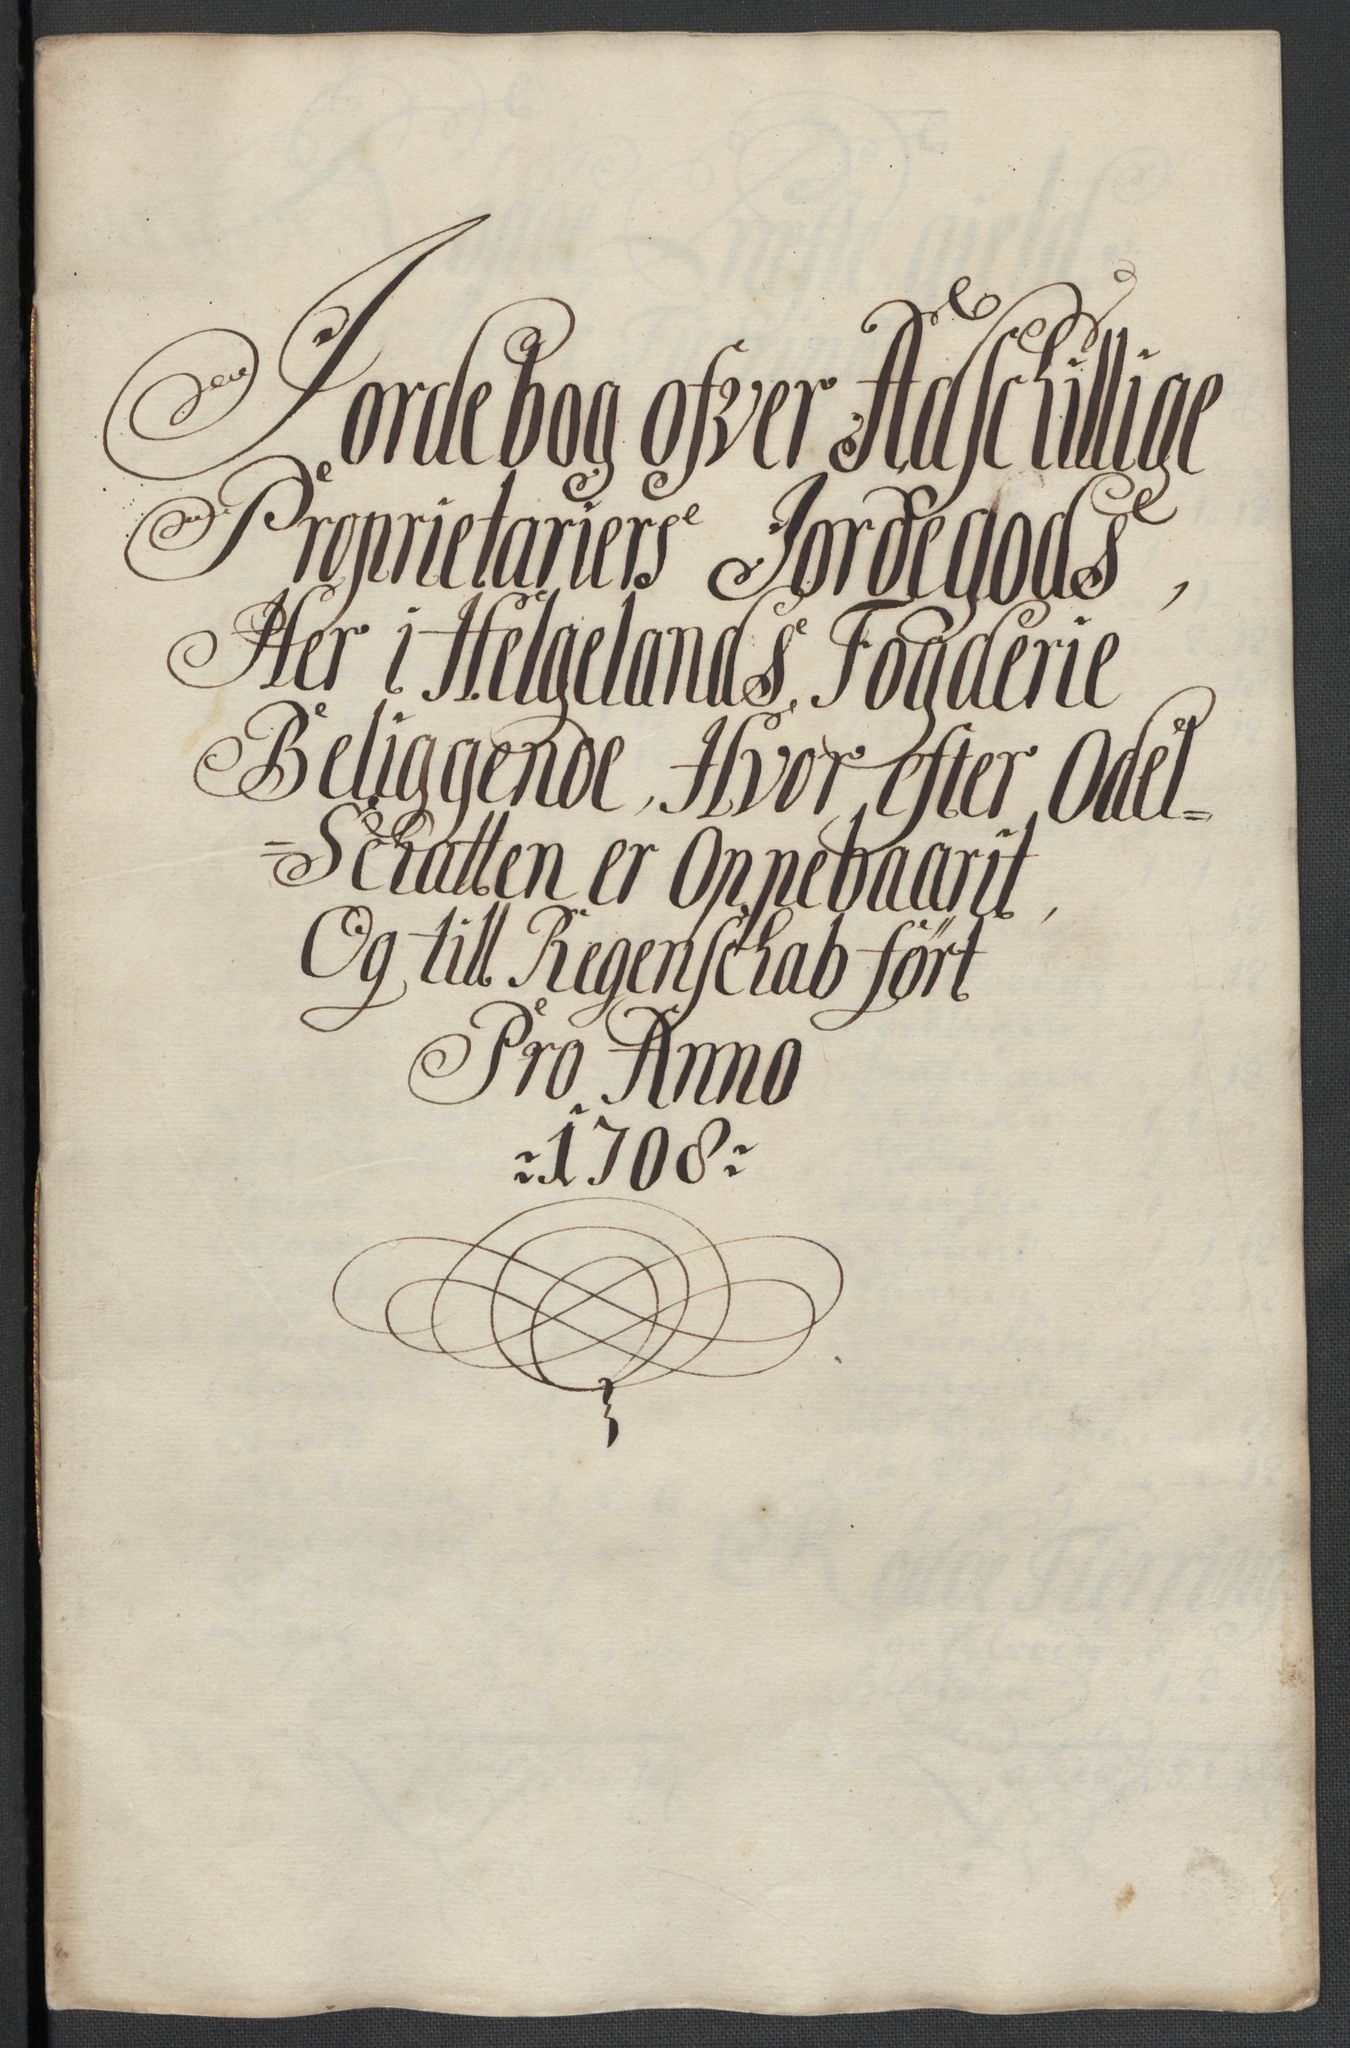 Jordebog ofver Adschillige
Proprietariers Jordegods,
Her i Helgelands Fogderie
Beliggende, Hvor efter Odel-
=Schatten er Oppebaarit,
Og till Regenschab fört
Pro Anno
1708